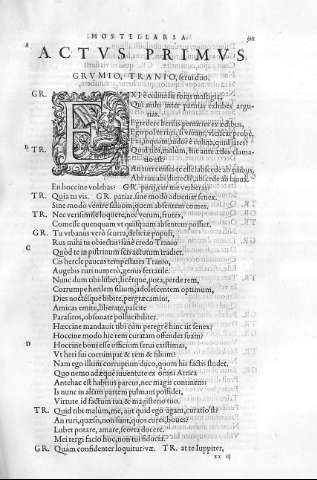 MOSTELLARIA
A
ACTVS PRIMVS
GRVMIO, TRANIO, serui duo.
GR. EXI è culina sis foras mastigia,
Qui mihi inter patinas exhibes argu
tias.
Egredere herilis pernicies ex ædibus,
Ego pol te ruri, si viuam, vlciscar probè.
inquam, nidor è culina, quid lates?
B
TR. Quid tibi, malum, hic ante ædes clama
tio est?
An ruri censes te esse? abscede ab ædibus,
Abi rus, abi dierectè, abscede ab ianua.
En hoccine volebas? GR. perij, cur me verberas?
TR. Quia tu vis. GR. patiar. sine modo adueniat senex.
Sine modo venire saluum, quem absentem comes.
TR. Nec verisimile loquere, nec verum, frutex,
Comesse quenquam vt quisquam absentem possiet.
GR. Tu vrbanus verò scurra, deliciæ popli,
Rus mihi tu obiectas? sanè credo Tranio
C
Quòd te in pistrinum scis actutum tradier.
Cis hercle paucas tempestates Tranio,
Augebis ruri numerum, genus ferratile.
Nunc dum tibi lubet, licétque, pota, perde rem,
Corrumpe herilem filium, adolescentem optimum,
Dies noctésque bibite, pergræcamini,
Amicas emite, liberate, pascite
Parasitos, obsonate pollucibiliter.
Hæccine mandauit tibi cum peregrè hinc iit senex?
Hoccine modo hic rem curatam offendet suam?
D
Hoccine boni esse officium serui existimas,
Vt heri sui corrumpat & rem & filium?
Nam ego illum corruptum duco, quom his factis studet,
Quo nemo adæquè iuuentute ex omni Attica
Antehac est habitus parcus, nec magis continens:
Is nunc in aliam partem palmam possidet,
Virtute id factum tua & magisterio tuo.
TR. Quid tibi malùm, me, aut quid ego agam, curatio st?
An ruri, quæso, non sunt, quos cures, boues?
Lubet potare, amare, scorta ducere.
Mei tergi facio hoc, non tui fiducia.
GR. Quàm confidenter loquitur væ. TR. at te Iuppiter,
xx iij